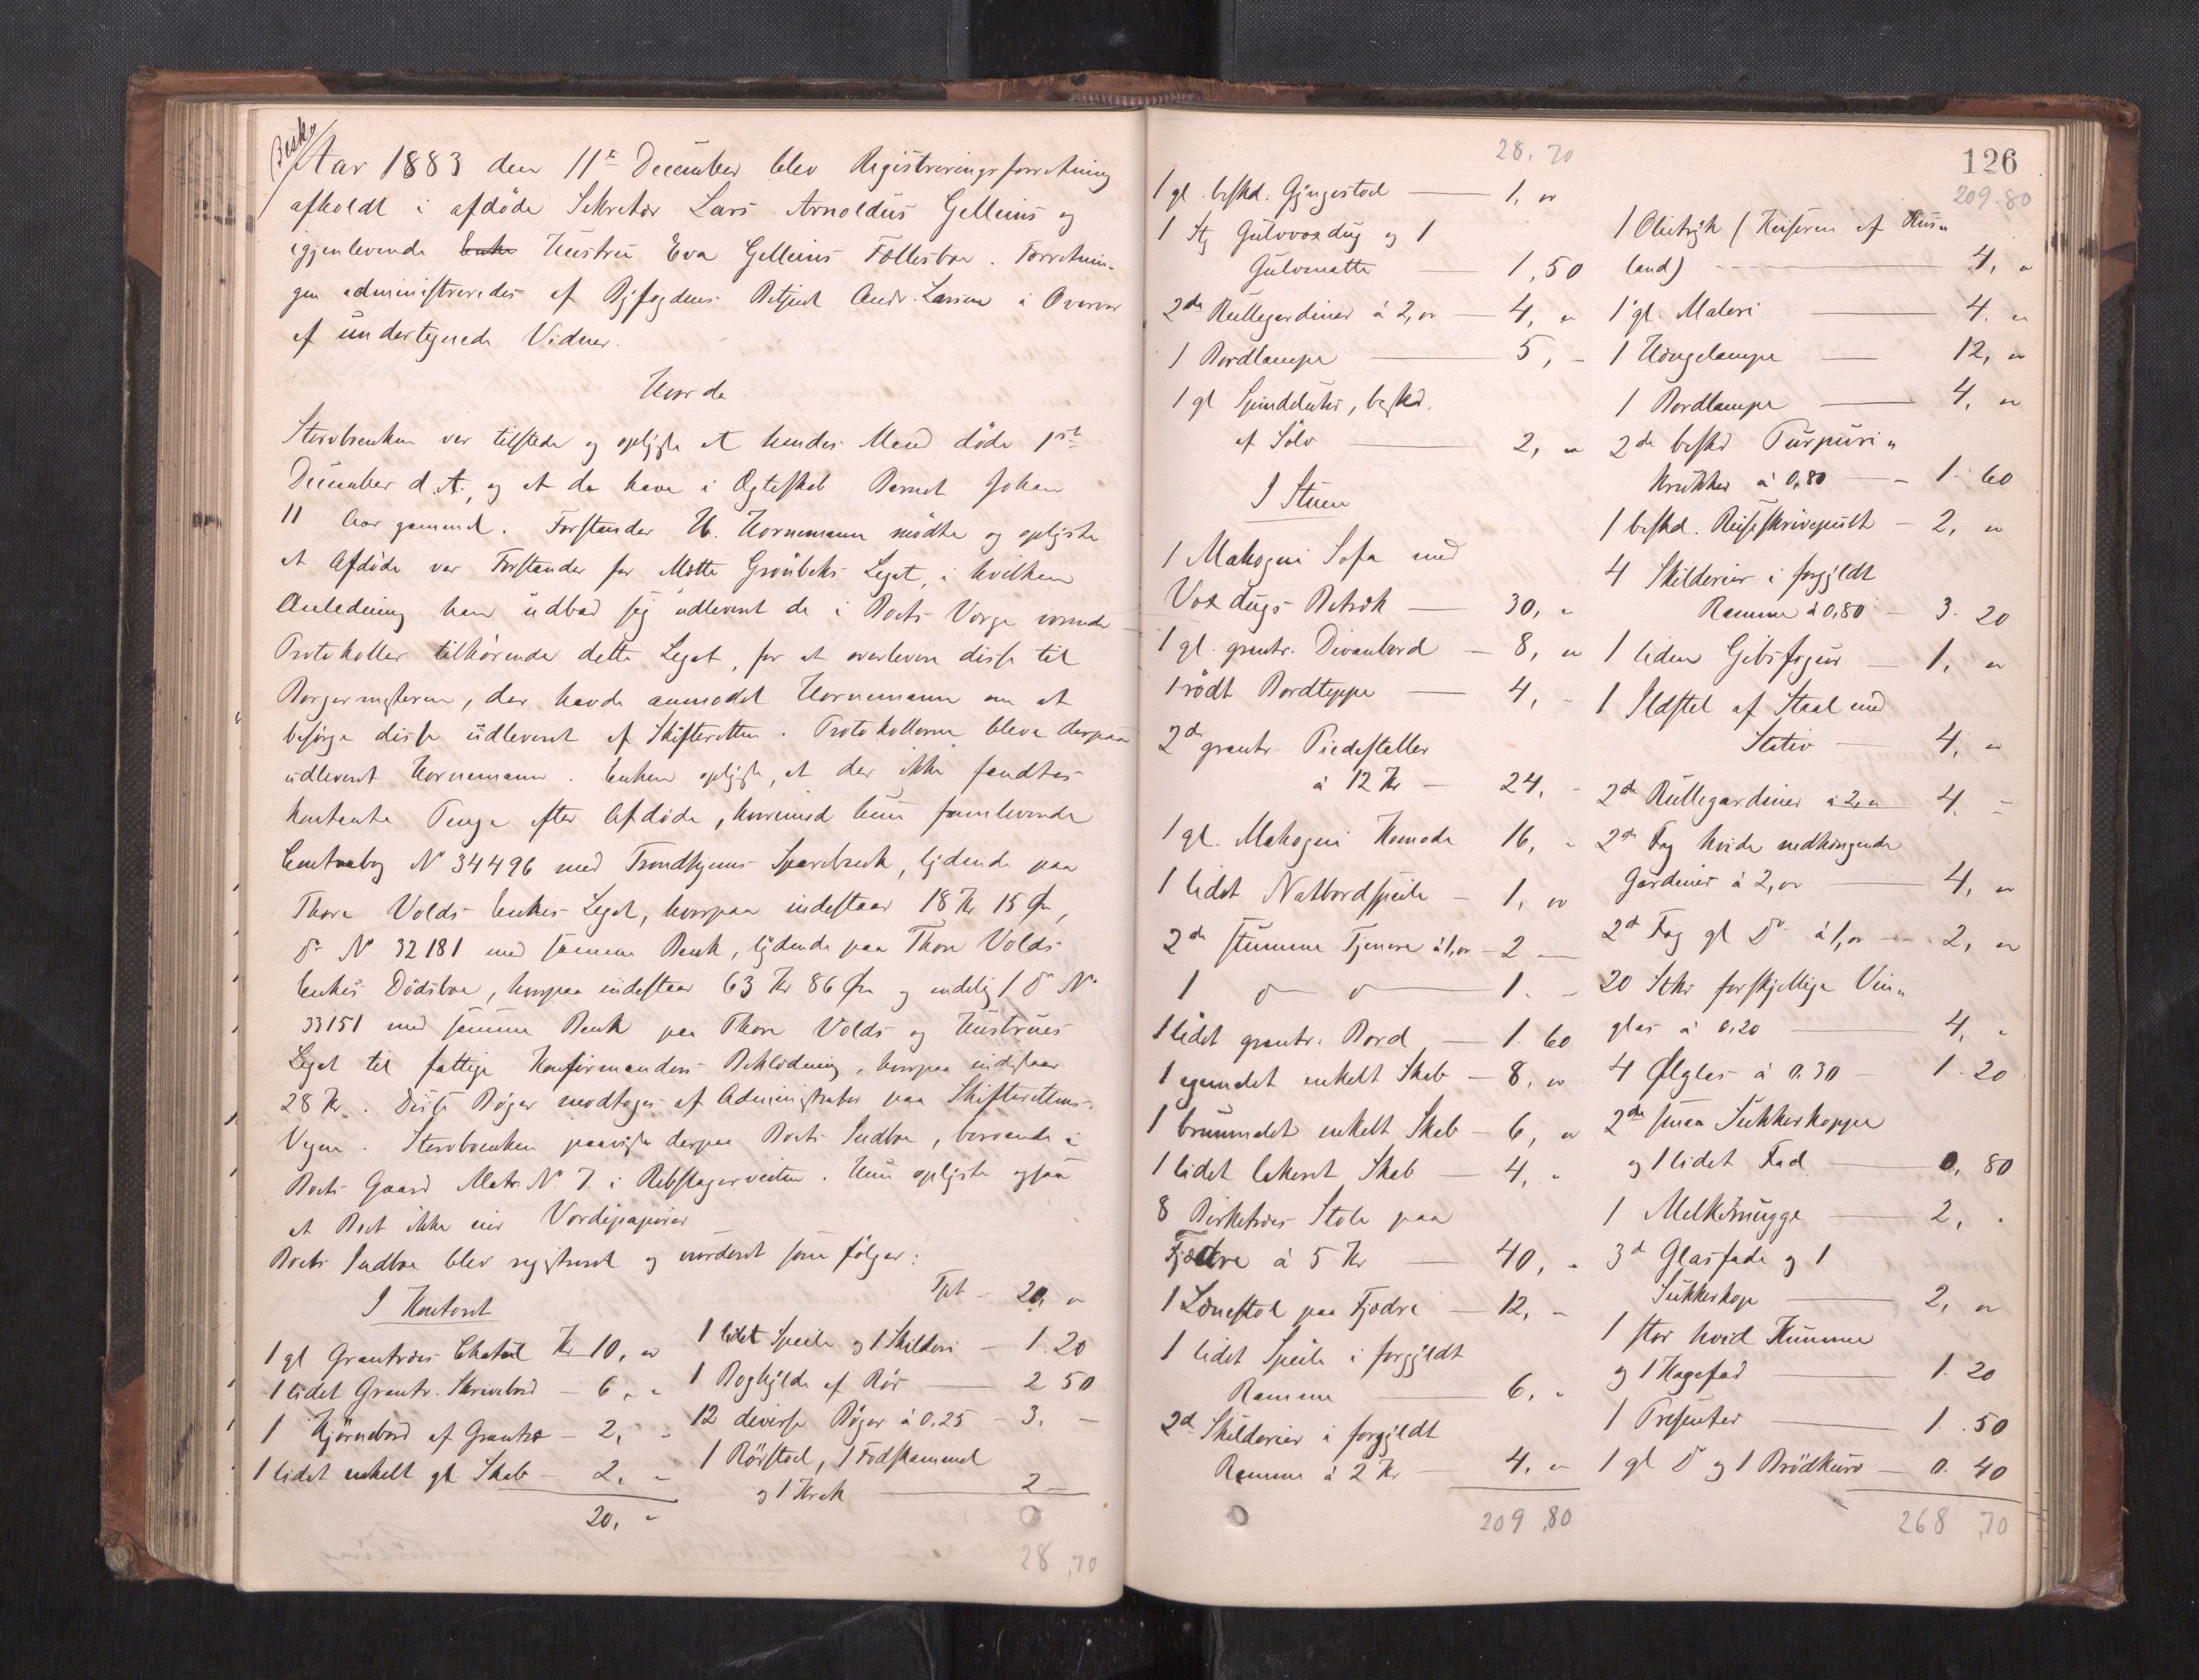 Besk.
Aar 1883 den 11te December blev Registreringsforretning
afholdt i afdöde Sekretær Lars Arnoldus Gellein's og
igjenlevende Enke Hustru Eva Gelleins Fællesboe. Forretnin-
gen administreredes af Byfogdens Betjent Andr. Larsen i Overvær
af undertegnede Vidner.
Hvorda
Stervboenken var tilstede og oplyste at hendes Mand döde 1ste
December d. A., og at de have i Ægteskab Barnet Johan
11 Aar gammel. Forstander H. Hornemann mödte og oplyste
at Afdöde var Forstander for Mette Grönbeks Legat, i hvilken
Anledning han udbad sig udleveret de i Boets Værge værende
Protokoller tilhörende dette Legat, for at overlevere disse til
Borgermesteren, der havde anmodet Hornemann om at
besörge disse udleveret af Skifteretten. Protokollerne bleve derpaa
udleveret Hornemann. Enken oplyste, at der ikke fandtes
kontante Penge efter Afdöde, hvorimod hun fremleverede
Contrabog No 34496 med Trondhjems Sparebank, lydende paa
Thore Volds Enkes Legat, hvorpaa indestaar 18 Kr 15 Øre,
do No 32181 med samme Bank, lydende paa Thore Volds
Enkes Dödsboe, hvorpaa indestaar 63 Kr 86 Øre og endelig 1 do No
33151 med samme Bank paa Thore Volds og Hustrues
Legat til fattige Konfirmanders Beklædning, hvorpaa indestaar
28 Kr. Disse Böger modtoges af Administrator paa Skifterettens
Vegne. Stervboenken paaviste derpaa Boets Indboe, beroende i
Boets Gaard Matr. No 7 i Rebslagerveiten. Hun oplyste ogsaa
at Boet ikke eier Værdipapirer
Boets Indboe blev registreret og vurderet som fölger:
I Kontoret
1 gl Grantræes Chatol Kr 10, "
1 lidet Grantr. Skrivebord – 6, "
1 Hjörnebord af Grantræ – 2, "
1 lidet enkelt gl. Skab – 2, "
20, "
Tpt – 20, "
1 lidet Speile og 1 Skilderi – 1.20
1 Boghylde af Rör – 2 50
12 diverse Böger à 0.25 – 3. –
1 Rörstol, 1 Fodskammel
og 1 Krak – 2 –
28,70
126
28.70
1 gl. beskd. Gyngestol – 1, "
1 Stk Gulvvoxdug og 1
Gulvmatte – 1,50
2de Rullegardiner à 2, " – 4, "
1 Bordlampe – 5, –
1 gl Spindeluhr, beskd.
af Sölv – 2, "
I Stuen
1 Mahogni Sofa med
Voxdugs Betræk – 30, "
1 gl. grantr. Divanbord – 8, "
1 rödt Bordteppe – 4, –
2de grantr. Piedestaller
à 12 Kr – 24, –
1 gl. Mahogni Komode 16, "
1 lidet Natbordspeile – 1, "
2de stumme Tjenere à 1, " – 2 –
1 do do – 1. –
1 lidet grantr. Bord – 1.60
1 egemalet enkelt Skab – 8, "
1 brunmalet enkelt Skab – 6, "
1 lidet lakeret Skab – 4, "
8 Birketræes Stole paa
Fjædre à 5 Kr – 40, "
1 Lænestol paa Fjædre – 12, –
1 lidet Speile i forgyldt
Ramme – 6, "
2de Skilderier i forgyldt
Ramme à 2 Kr – 4, "
209,80
209.80
1 Olietryk (Keiseren af Rus"
land) – 4, "
1 gl. Maleri – 4. "
1 Hængelampe – 12, "
1 Bordlampe – 4, "
2de beskd Purpuri"
krukker à 0,80 – 1.60
1 beskd. Reiseskrivepult – 2, "
4 Skilderier i forgyldt
Ramme à 0,80 – 3.20
1 liden Gibsfigur – 1, "
1 Ildstel af Staal med
Stativ – 4, "
2de Rullegardiner à 2, " 4. –
2de Fag hvide nedhængende
Gardiner à 2, " – 4, "
2de Fag gl Do à 1, " – 2, "
20 Stkr forskjellige Vin"
glas à 0.20 – 4, "
4 Ølglas à 0.30 – 1.20
2de smaa Sukkerkopper
og 1 lidet Fad – 0,80
1 Melkemugge – 2, "
3de Glasfade og 1
Sukkerkop – 2, "
1 stor hvid Kumme
og 1 Kagefad – 1.20
1 Presenter – 1.50
1 gl Do og 1 Brödkurv – 0.40
268,70